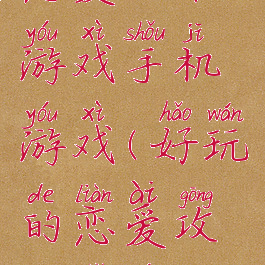 yóu xì shǒu jī
游戏手机
yóu xì hǎo wán
游戏(好玩
de liàn ài gōng
的恋爱攻